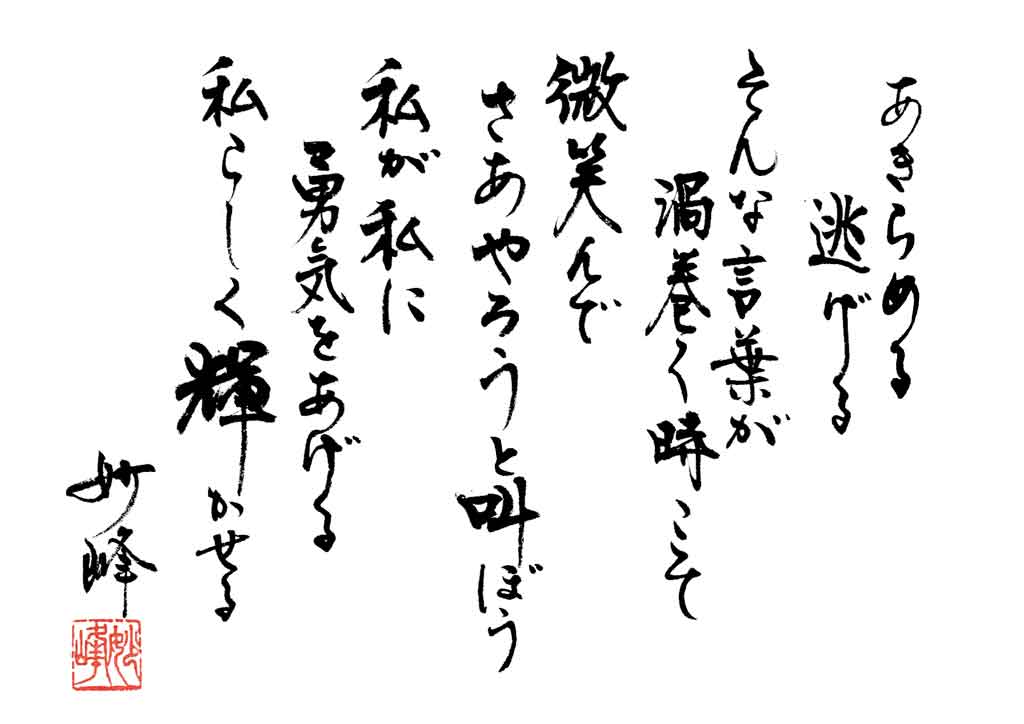 あきらめる
逃げる
そんな言葉が
渦巻く時こそ
微笑んで
さあやろうと叫ぼう
私が私に
勇気をあげる
私らしく輝かせる
妙峰
妙峰